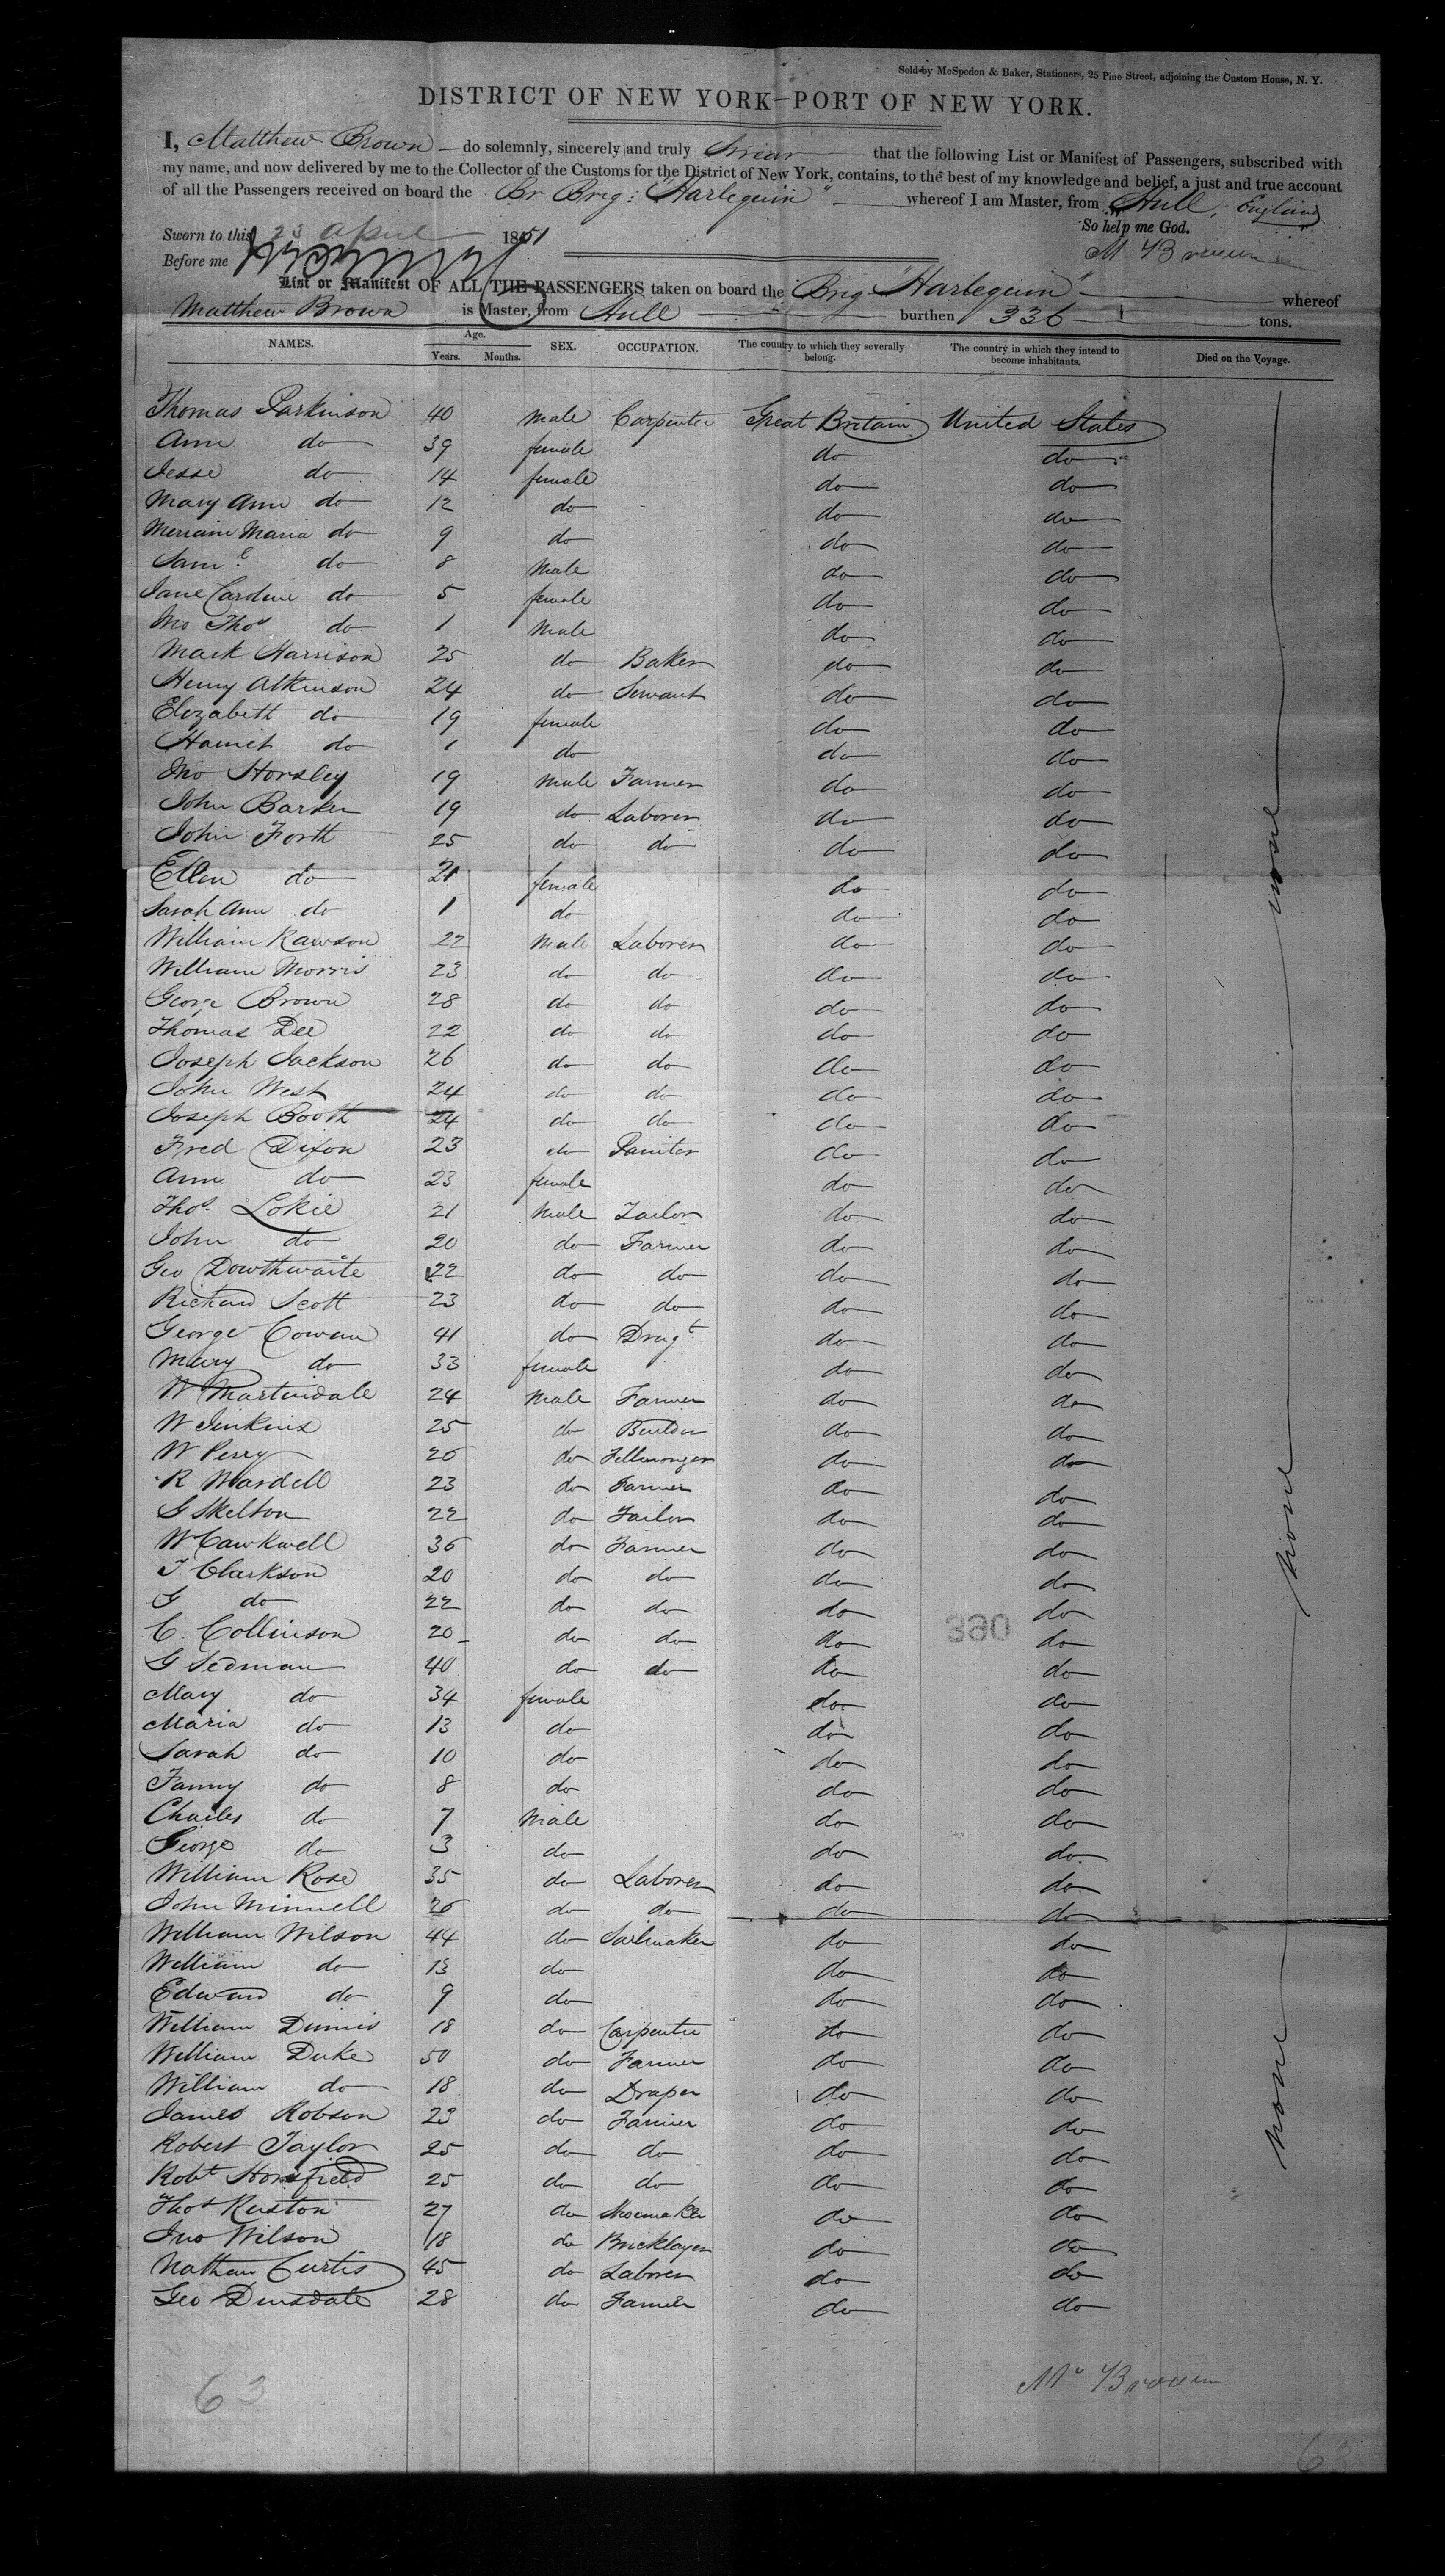 Sold by McSpedon & Baker, Stationers, 25 Pine Street, adjoining the Custom House, N. Y.
DISTRICT OF NEW YORK—PORT OF NEW YORK.
I, Matthew Brown do solemnly, sincerely and truly Swear that the following List or Manifest of Passengers, subscribed with
my name, and now delivered by me to the Collector of the Customs for the District of New York, contains, to the best of my knowledge and belief, a just and true account
of all the Passengers received on board the Br Brig: "Harlequin" whereof I am Master, from Hull, England
Sworn to this 23 April 1851 So help me God.
Before me M Brown
List or Manifest OF ALL THE PASSENGERS taken on board the Brig "Harlequin" whereof
Matthew Brown is Master, from Hull burthen 336 tons.
NAMES. Age. Years. Months. SEX. OCCUPATION. The country to which they severally belong. The country in which they intend to become inhabitants. Died on the Voyage.
Thomas Parkinson 40 male Carpenter Great Britain United States
Ann do 39 female do do
Jesse do 14 female do do
Mary Ann do 12 do do do
Merriam Maria do 9 do do do
Saml do 8 Male do do
Jane Caroline do 5 female do do
Jno Thos do 1 Male do do
Mark Harrison 25 do Baker do do
Henry Atkinson 24 do Servant do do
Elizabeth do 19 female do do
Harriet do 1 do do do
Jno Horsley 19 Male Farmer do do
John Barker 19 do Laborer do do
John Forth 25 do do do do
Ellen do 21 female do do
Sarah Ann do 1 do do do
William Rawson 22 Male Laborer do do
William Morris 23 do do do do
George Brown 28 do do do do
Thomas Dee 22 do do do do
Joseph Jackson 26 do do do do
John West 24 do do do do
Joseph Booth 24 do do do do
Fred Dixon 23 do Painter do do
Ann do 23 female do do
Thos. Lokie 21 Male Tailor do do
John do 20 do Farmer do do
Geo Dowthwaite 22 do do do do
Richard Scott 23 do do do do
George Cowan 41 do Drugt do do
Mary do 33 female do do
W Martindale 24 Male Farmer do do
W Jenkins 25 do do do
W Percy 26 do Fellmonger do do
R Wardell 23 do Farmer do do
G Skelton 22 do Tailor do do
W Cawkwell 36 do Farmer do do
T Clarkson 20 do do do do
G do 22 do do do do
C. Collinson 20 do do do do
G Sedman 40 do do do do
Mary do 34 female do do
Maria do 13 do do do
Sarah do 10 do do do
Fanny do 8 do do do
Charles do 7 Male do do
George do 3 do do do
William Rose 35 do Laborer do do
John Minnell 26 do do do do
William Wilson 44 do Sailmaker do do
William do 13 do do do
Edward do 9 do do do
William 18 do Carpenter do do
William Duke 50 do Farmer do do
William do 18 do Draper do do
James Robson 23 do Farmer do do
Robert Taylor 25 do do do do
Robt Horsfield 25 do do do do
Thos Ruston 27 do Shoemaker do do
Jno Wilson 18 do Bricklayer do do
Nathan Curtis 45 do Laborer do do
Geo Dinsdale 28 do Farmer do do
none
none
none
M Brown
63
63